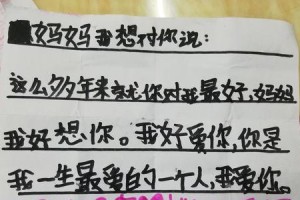 妈妈我想对你说：
这么多年来就你对我最好，妈妈
我好想你。我好爱你，你是
我一生最爱的一个人，我爱你。